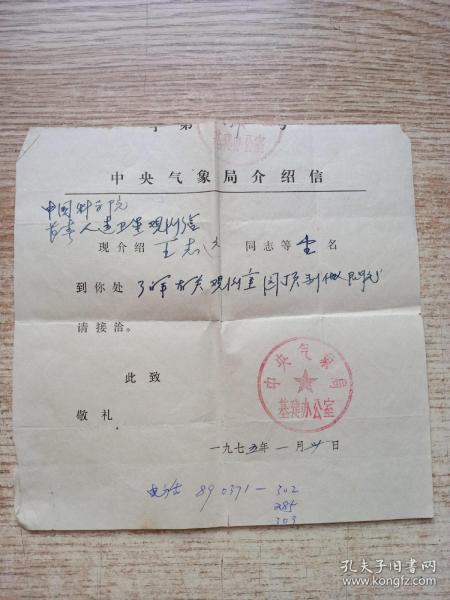 字第 号
基建办公室
中央气象局介绍信
中国科学院
长春人造卫星观测站
现介绍 王志 同志等 壹 名
到你处 了解有关观测室圆顶制做
请接洽。
此致
敬礼
中央气象局
基建办公室
一九七五年 一月 日
电话 890371—302
285
303
孔夫子旧书网
www.kongfz.com